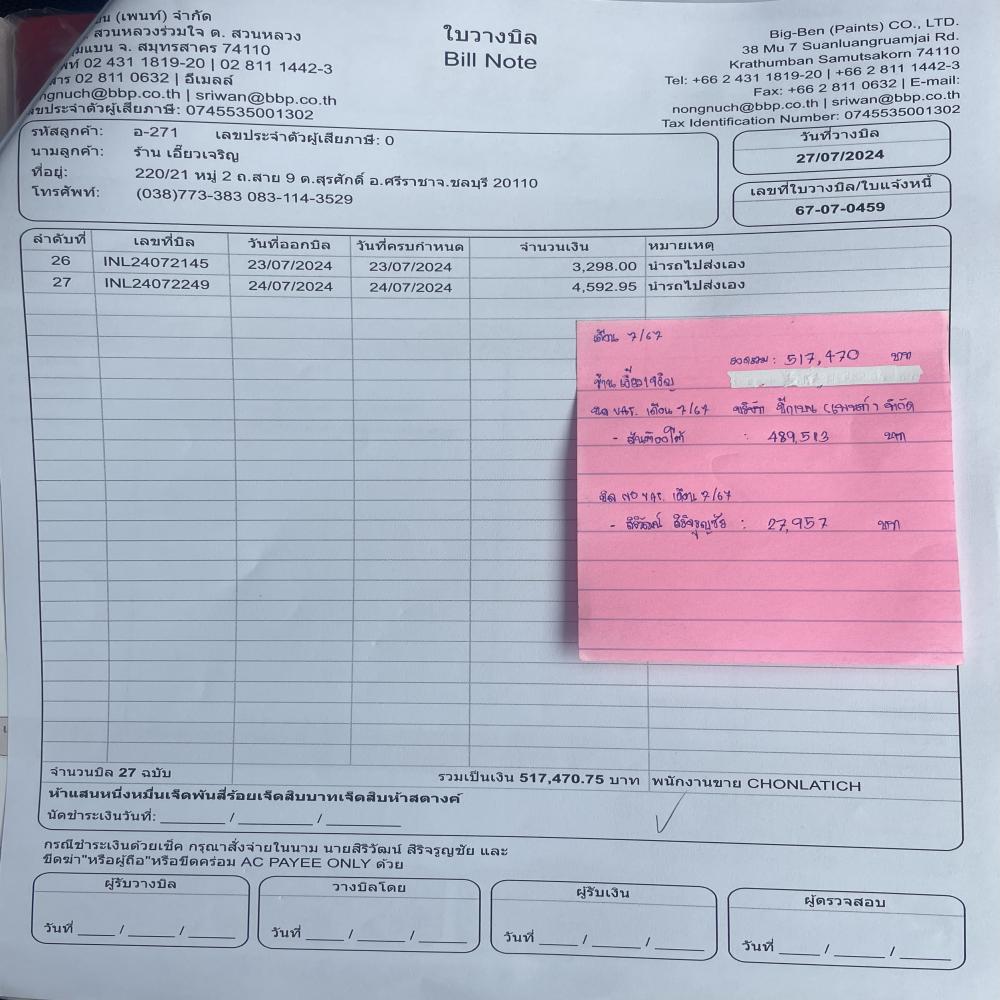 บน (เพนท์) จำกัด
สวนหลวงร่วมใจ ต. สวนหลวง
แบน จ. สมุทรสาคร 74110
02 431 1819-20 | 02 811 1442-3
02 811 0632 | อีเมลล์
ngnuch@bbp.co.th | sriwan@bbp.co.th
ขประจำตัวผู้เสียภาษี: 0745535001302
ใบวางบิล
Bill Note
Big-Ben (Paints) CO., LTD.
38 Mu 7 Suanluangruamjai Rd.
Krathumban Samutsakorn 74110
Tel: +66 2 431 1819-20 | +66 2 811 1442-3
Fax: +66 2 811 0632 | E-mail:
nongnuch@bbp.co.th | sriwan@bbp.co.th
Tax Identification Number: 0745535001302
รหัสลูกค้า: อ-271 เลขประจำตัวผู้เสียภาษี: 0
นามลูกค้า: ร้าน เอี๊ยวเจริญ
ที่อยู่: 220/21 หมู่ 2 ถ.สาย 9 ต.สุรศักดิ์ อ.ศรีราชาจ.ชลบุรี 20110
โทรศัพท์: (038)773-383 083-114-3529
วันที่วางบิล
27/07/2024
เลขที่ใบวางบิล/ใบแจ้งหนี้
67-07-0459
ลำดับที่ เลขที่บิล วันที่ออกบิล วันที่ครบกำหนด จำนวนเงิน หมายเหตุ
26 INL24072145 23/07/2024 23/07/2024 3,298.00 นำรถไปส่งเอง
27 INL24072249 24/07/2024 24/07/2024 4,592.95 นำรถไปส่งเอง
เดือน 7/67
ยอดรวม : 517,470 บาท
ร้าน เอี๊ยวเจริญ
บิล VAT. เดือน 7/67 บริษัท บิ๊กเบน (เพนท์) จำกัด
: 489,513 บาท
บิล NO VAT. เดือน 7/67
- สิริวัฒน์ สิริจรูญชัย : 27,957 บาท
จำนวนบิล 27 ฉบับ รวมเป็นเงิน 517,470.75 บาท พนักงานขาย CHONLATICH
ห้าแสนหนึ่งหมื่นเจ็ดพันสี่ร้อยเจ็ดสิบบาทเจ็ดสิบห้าสตางค์
นัดชำระเงินวันที่: ______ / ______ / ______
กรณีชำระเงินด้วยเช็ค กรุณาสั่งจ่ายในนาม นายสิริวัฒน์ สิริจรูญชัย และ
ขีดฆ่า"หรือผู้ถือ"หรือขีดคร่อม AC PAYEE ONLY ด้วย
ผู้รับวางบิล วางบิลโดย ผู้รับเงิน ผู้ตรวจสอบ
วันที่ ____ / ____ / ____ วันที่ ____ / ____ / ____ วันที่ ____ / ____ / ____ วันที่ ____ / ____ / ____